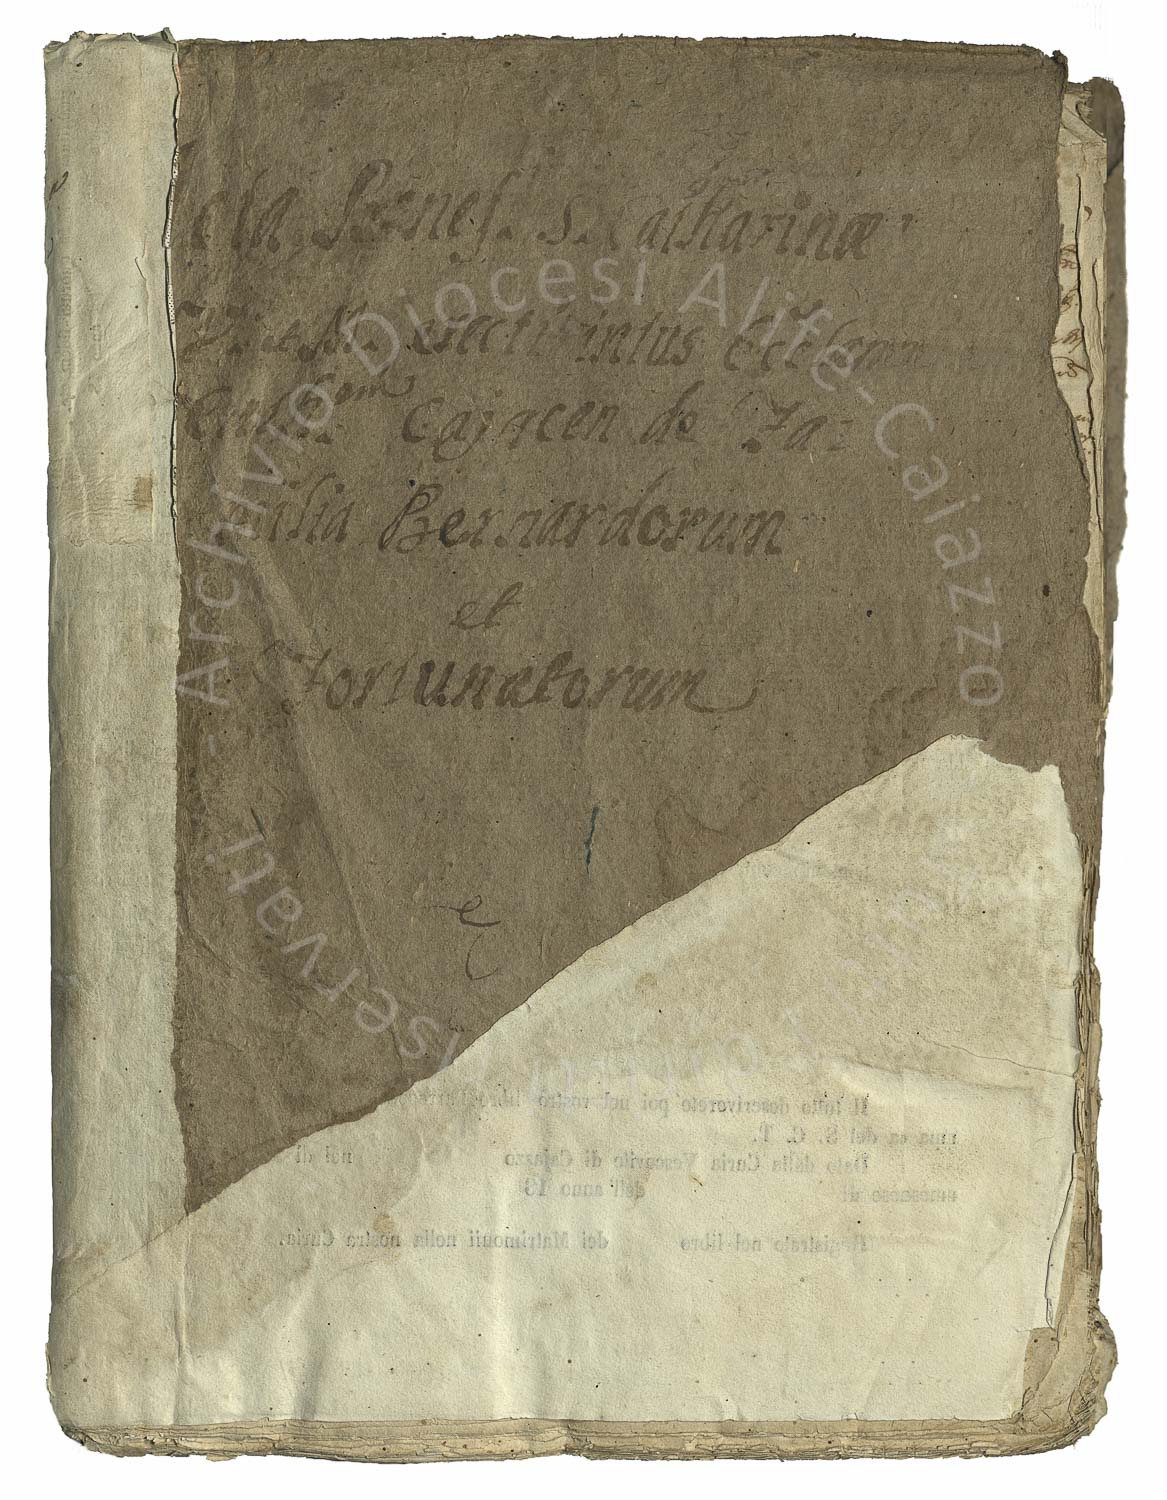 cta Benef. S. Catharinæ
V. et M. erecti intus Eccl.am
Cajacen de Fa:
ilia Bernardorum
et
Fortunatorum
Il tutto descriverete poi nel vostro libro
ma ca del S. C. T.
Dato dalla Curia Vescovile di Cajazzo nel dì
di dell'anno 19
Registrato nel libro dei Matrimonii nella nostra Curia.
- Archivio Diocesi Alife-Caiazzo - tutti i diritti riservati